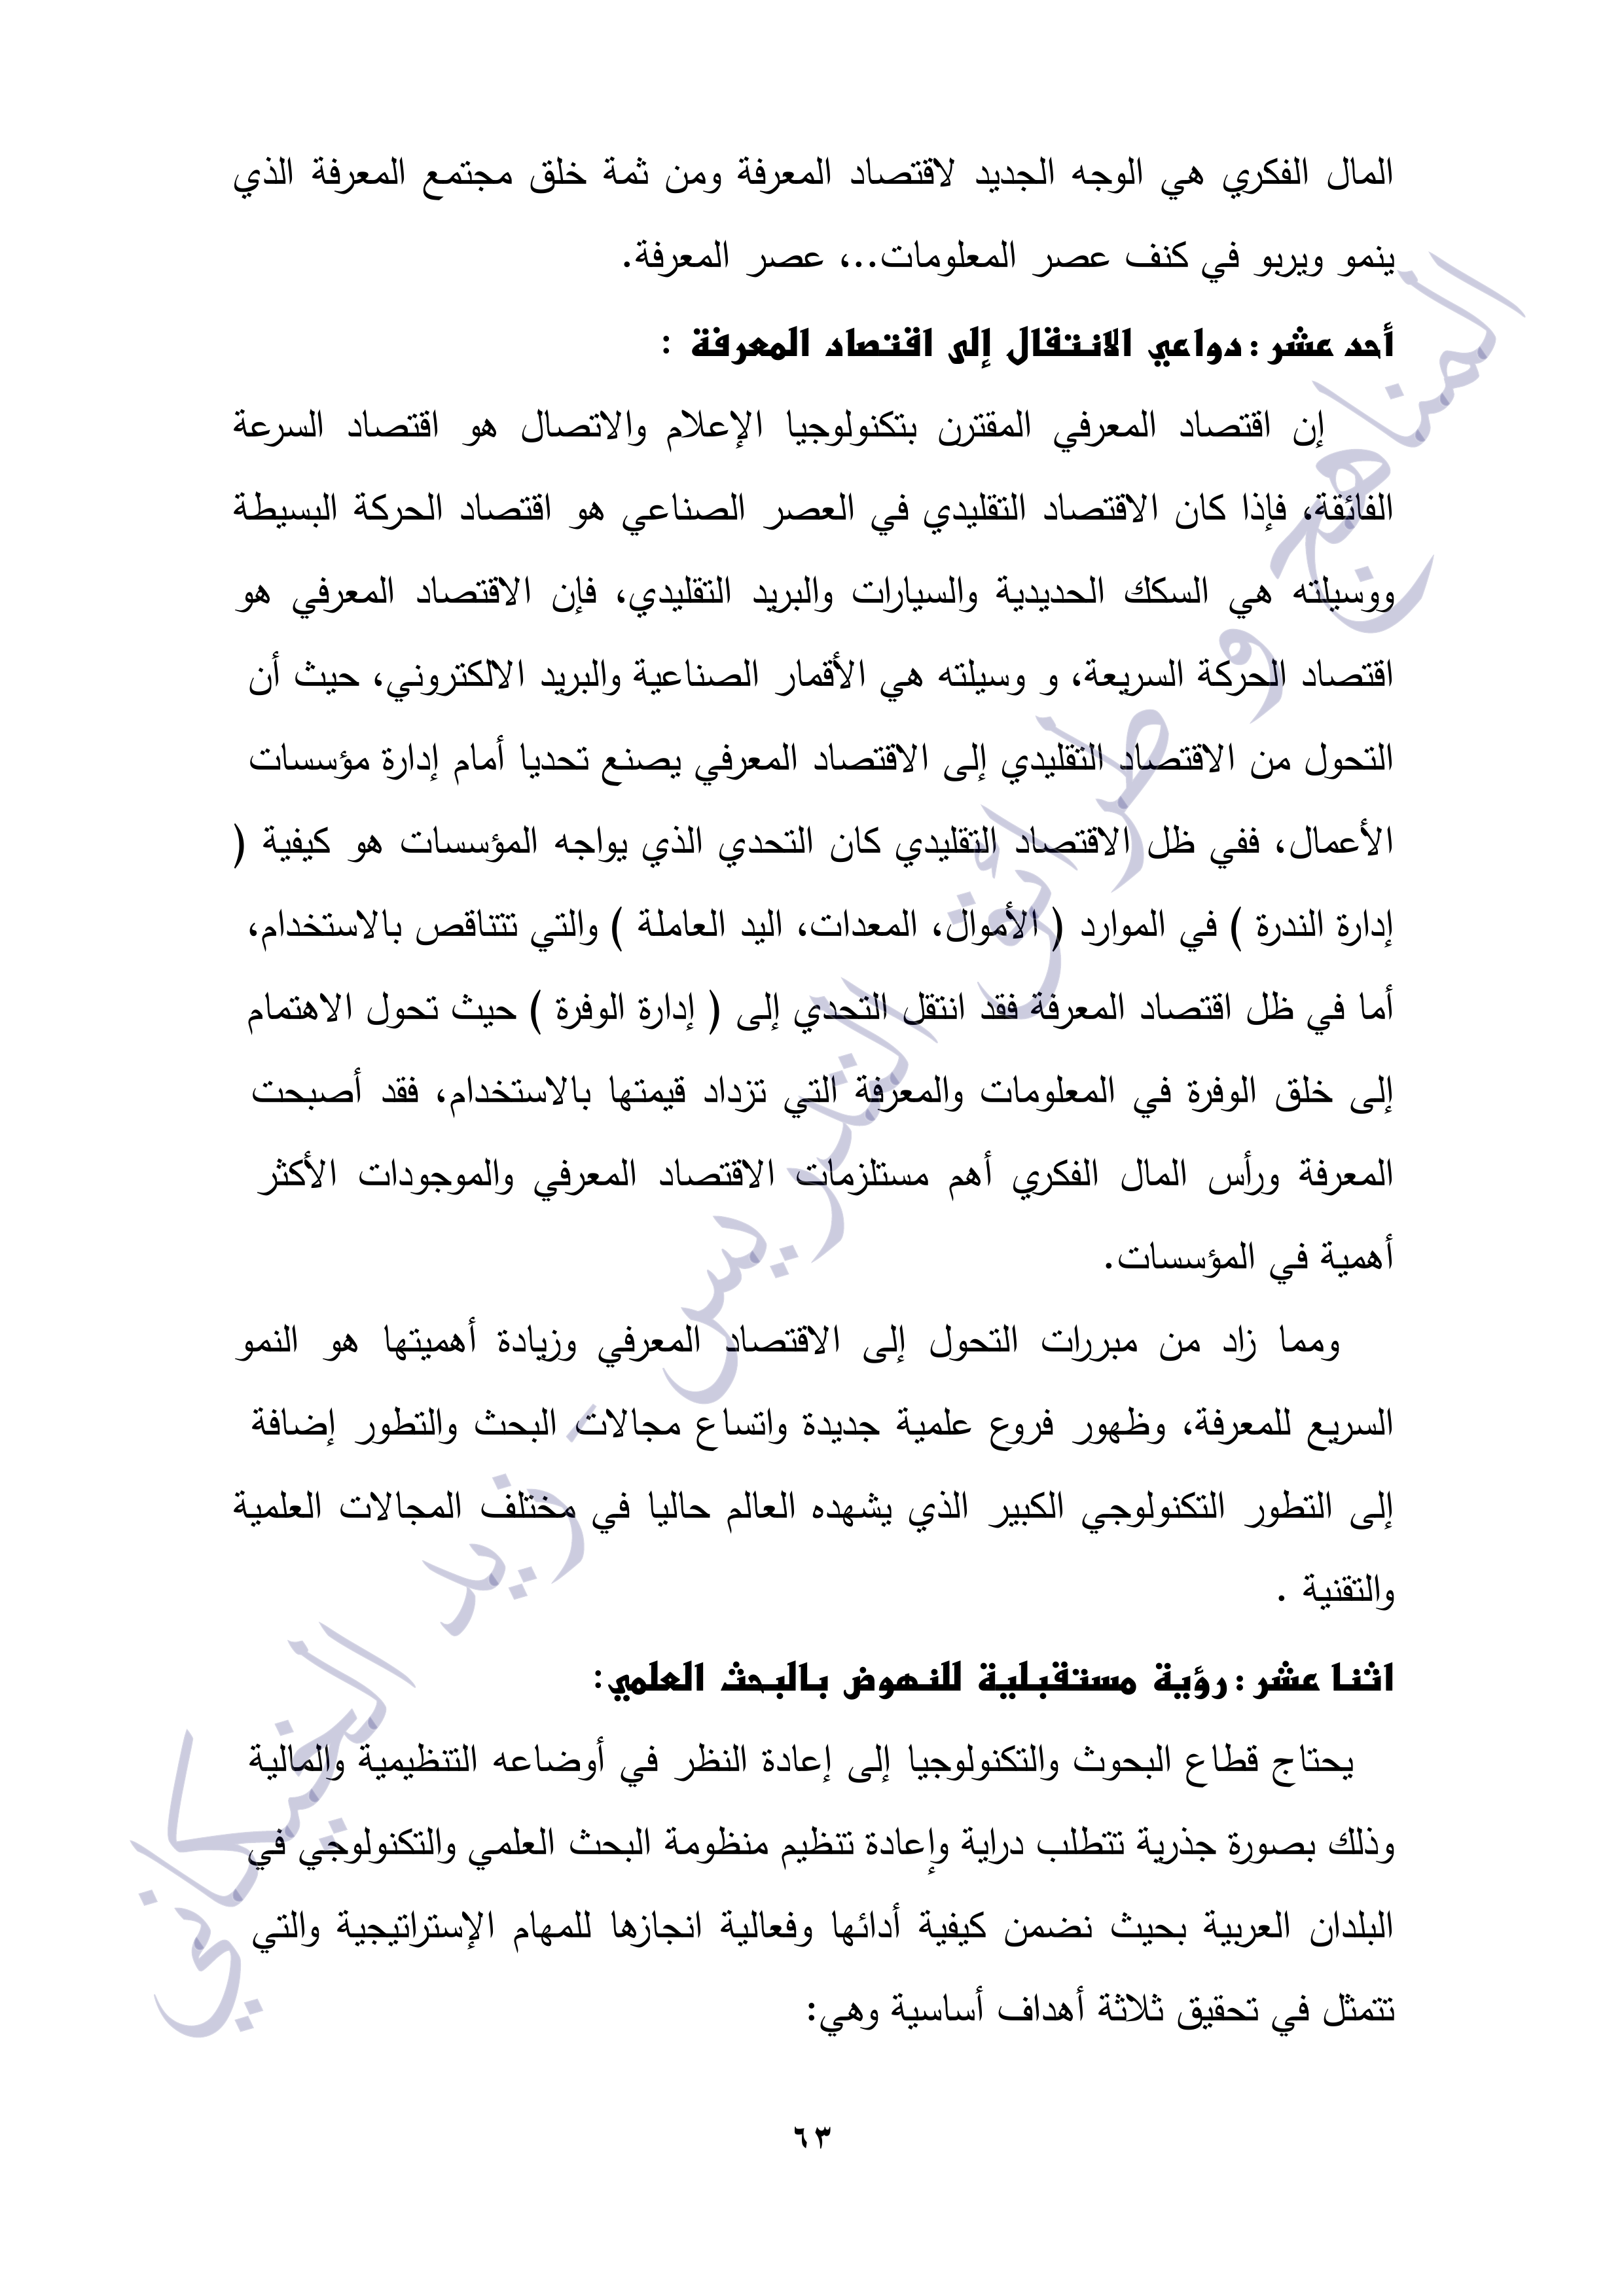 المال الفكري هي الوجه الجديد لاقتصاد المعرفة ومن ثمة خلق مجتمع المعرفة الذي
ينمو ويربو في كنف عصر المعلومات..، عصر المعرفة.
أحد عشر : دواعي الانتقال إلى اقتصاد المعرفة :
إن اقتصاد المعرفي المقترن بتكنولوجيا الإعلام والاتصال هو اقتصاد السرعة
الفائقة، فإذا كان الاقتصاد التقليدي في العصر الصناعي هو اقتصاد الحركة البسيطة
ووسيلته هي السكك الحديدية والسيارات والبريد التقليدي، فإن الاقتصاد المعرفي هو
اقتصاد الحركة السريعة، و وسيلته هي الأقمار الصناعية والبريد الالكتروني، حيث أن
التحول من الاقتصاد التقليدي إلى الاقتصاد المعرفي يصنع تحديا أمام إدارة مؤسسات
الأعمال، ففي ظل الاقتصاد التقليدي كان التحدي الذي يواجه المؤسسات هو كيفية (
إدارة الندرة ) في الموارد ( الأموال، المعدات، اليد العاملة ) والتي تتناقص بالاستخدام،
أما في ظل اقتصاد المعرفة فقد انتقل التحدي إلى ( إدارة الوفرة ) حيث تحول الاهتمام
إلى خلق الوفرة في المعلومات والمعرفة التي تزداد قيمتها بالاستخدام، فقد أصبحت
المعرفة ورأس المال الفكري أهم مستلزمات الاقتصاد المعرفي والموجودات الأكثر
أهمية في المؤسسات.
ومما زاد من مبررات التحول إلى الاقتصاد المعرفي وزيادة أهميتها هو النمو
السريع للمعرفة، وظهور فروع علمية جديدة واتساع مجالات البحث والتطور إضافة
إلى التطور التكنولوجي الكبير الذي يشهده العالم حاليا في مختلف المجالات العلمية
والتقنية .
اثنا عشر : رؤية مستقبلية للنهوض بالبحث العلمي:
يحتاج قطاع البحوث والتكنولوجيا إلى إعادة النظر في أوضاعه التنظيمية والمالية
وذلك بصورة جذرية تتطلب دراية وإعادة تنظيم منظومة البحث العلمي والتكنولوجي في
البلدان العربية بحيث نضمن كيفية أدائها وفعالية انجازها للمهام الإستراتيجية والتي
تتمثل في تحقيق ثلاثة أهداف أساسية وهي:
٦٣
المناهج و طرائق التدريس - زيد الخيكاني